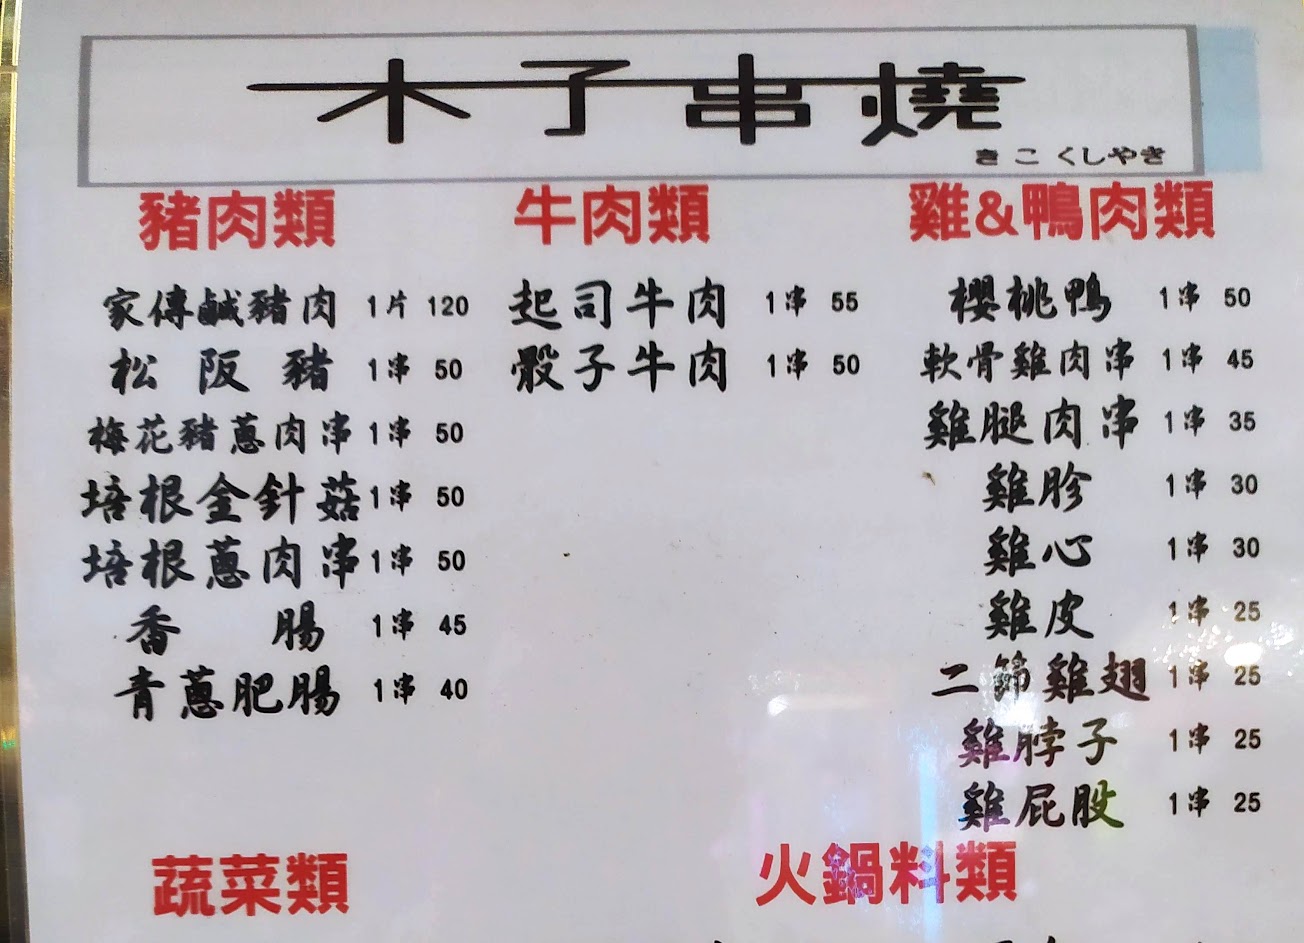 木子串燒
きこ くしやき
豬肉類
家傳鹹豬肉 1片 120
松阪豬 1串 50
梅花豬蔥肉串 1串 50
培根金針菇 1串 50
培根蔥肉串 1串 50
香腸 1串 45
青蔥肥腸 1串 40
牛肉類
起司牛肉 1串 55
骰子牛肉 1串 50
雞&鴨肉類
櫻桃鴨 1串 50
軟骨雞肉串 1串 45
雞腿肉串 1串 35
雞胗 1串 30
雞心 1串 30
雞皮 1串 25
二節雞翅 1串 25
雞脖子 1串 25
雞屁股 1串 25
蔬菜類
火鍋料類